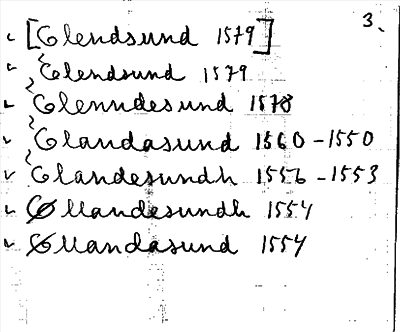 3.
[Elendsund 1579]
Elendsund 1579
Elenndesund 1578
Elandasund 1560-1550
Elandesundh 1556-1553
Øllandesundh 1554
Øllandasund 1554